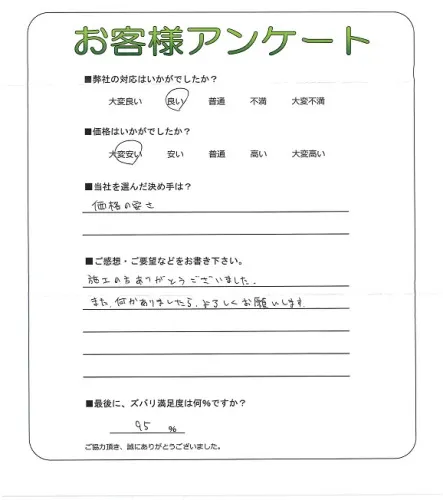 お客様アンケート
■弊社の対応はいかがでしたか？
大変良い 良い 普通 不満 大変不満
■価格はいかがでしたか？
大変安い 安い 普通 高い 大変高い
■当社を選んだ決め手は？
価格の安さ
■ご感想・ご要望などをお書き下さい。
施工の方ありがとうございました。
また、何かありましたら、よろしくお願いします。
■最後に、ズバリ満足度は何％ですか？
95 ％
ご協力頂き、誠にありがとうございました。